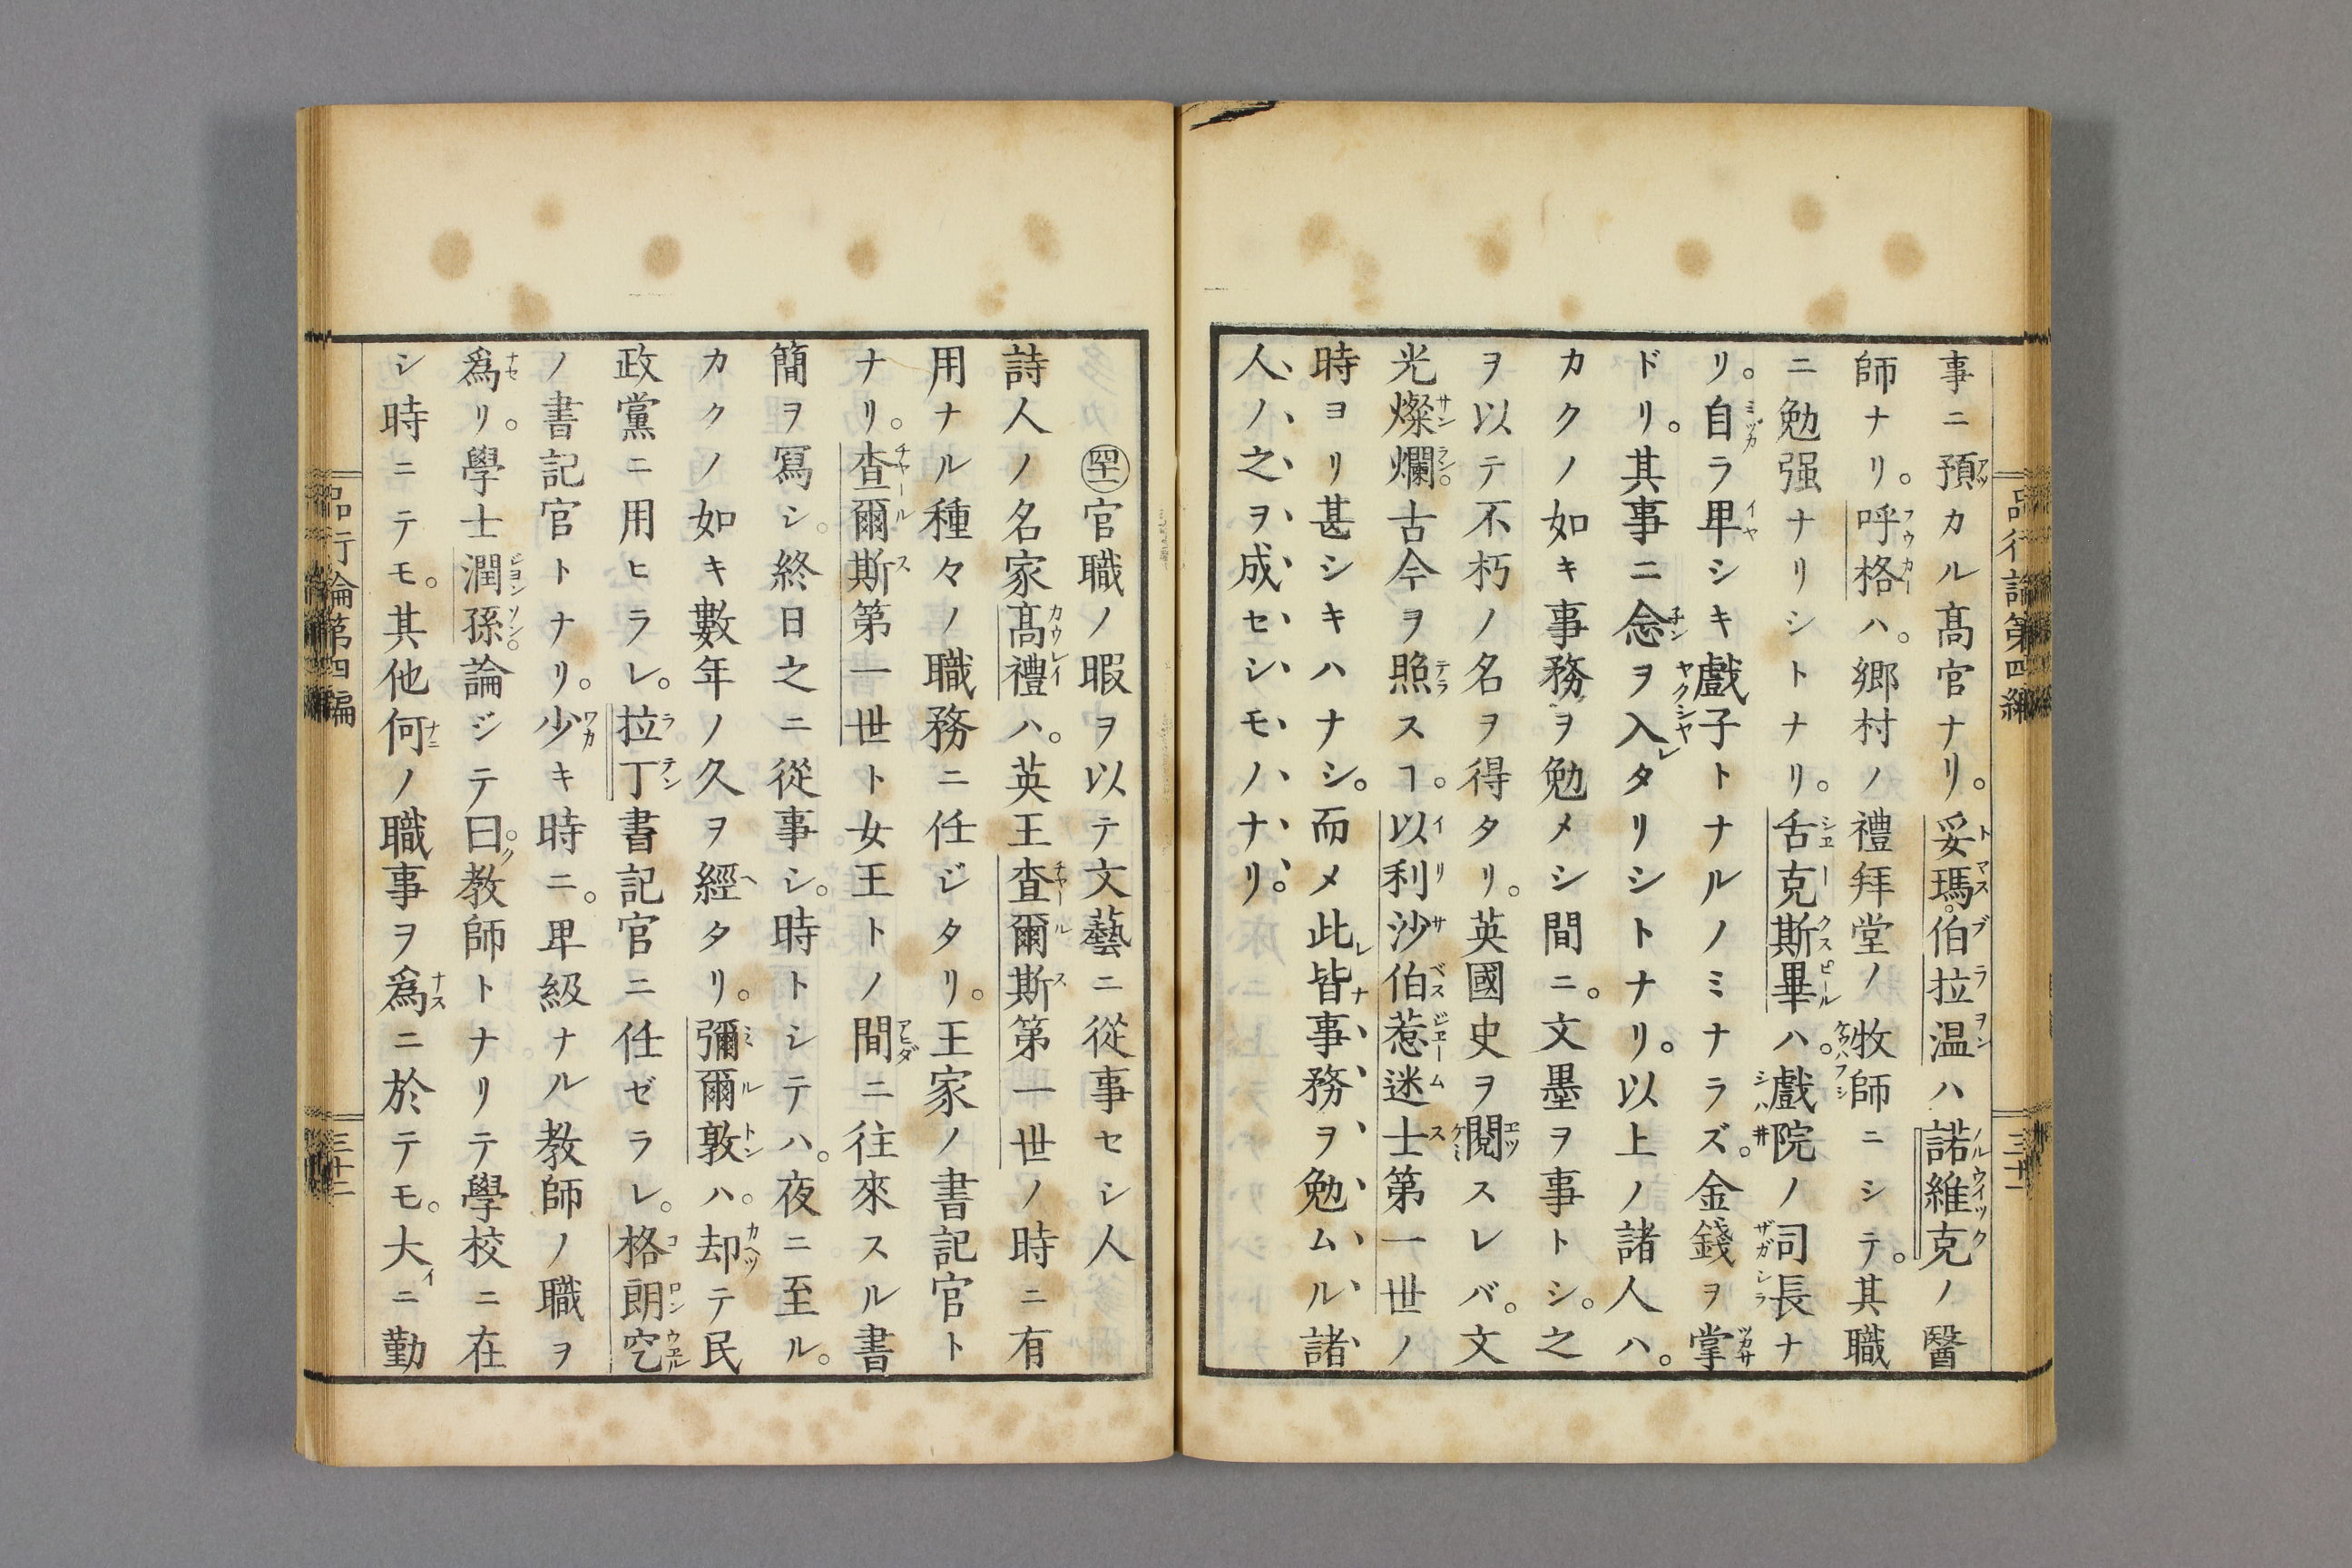 事ニ預カル髙官ナリ。妥瑪伯拉温ハ諾維克ノ醫
師ナリ。呼格ハ。郷村ノ禮拜堂ノ牧師ニシテ。其職
ニ勉强ナリシトナリ。舌克斯畢ハ。戲院ノ司長ナ
リ。自ラ卑シキ戲子トナルノミナラズ。金錢ヲ掌
ドリ。其事ニ念ヲ入レタリシトナリ。以上ノ諸人ハ。
カクノ如キ事務ヲ勉メシ間ニ。文墨ヲ事トシ。之
ヲ以テ不朽ノ名ヲ得タリ。英國史ヲ閱スレバ。文
光燦爛。古今ヲ照スヿ。以利沙伯惹迷士第一世ノ
時ヨリ甚シキハナシ。而メ此レ皆ナ事務ヲ勉ムル諸
人ノ之ヲ成セシモノナリ。
品行論第四編
三十一
㊶官職ノ暇ヲ以テ文藝ニ從事セシ人
詩人ノ名家髙禮ハ。英王査爾斯第一世ノ時ニ有
用ナル種々ノ職務ニ任ジタリ。王家ノ書記官ト
ナリ。査爾斯第一世ト女王トノ間ニ往來スル書
簡ヲ寫シ。終日之ニ從事シ。時トシテハ。夜ニ至ル。
カクノ如キ數年ノ久ヲ經タリ。彌爾敦ハ。却テ民
政黨ニ用ヒラレ。拉丁書記官ニ任ゼラレ。格朗空
ノ書記官トナリ。少キ時ニ。卑級ナル教師ノ職ヲ
爲リ。學士潤孫。論ジテ曰ク。教師トナリテ學校ニ在
シ時ニテモ。其他何ノ職事ヲ爲ニ於テモ。大イニ勤
品行論第四編
三十二